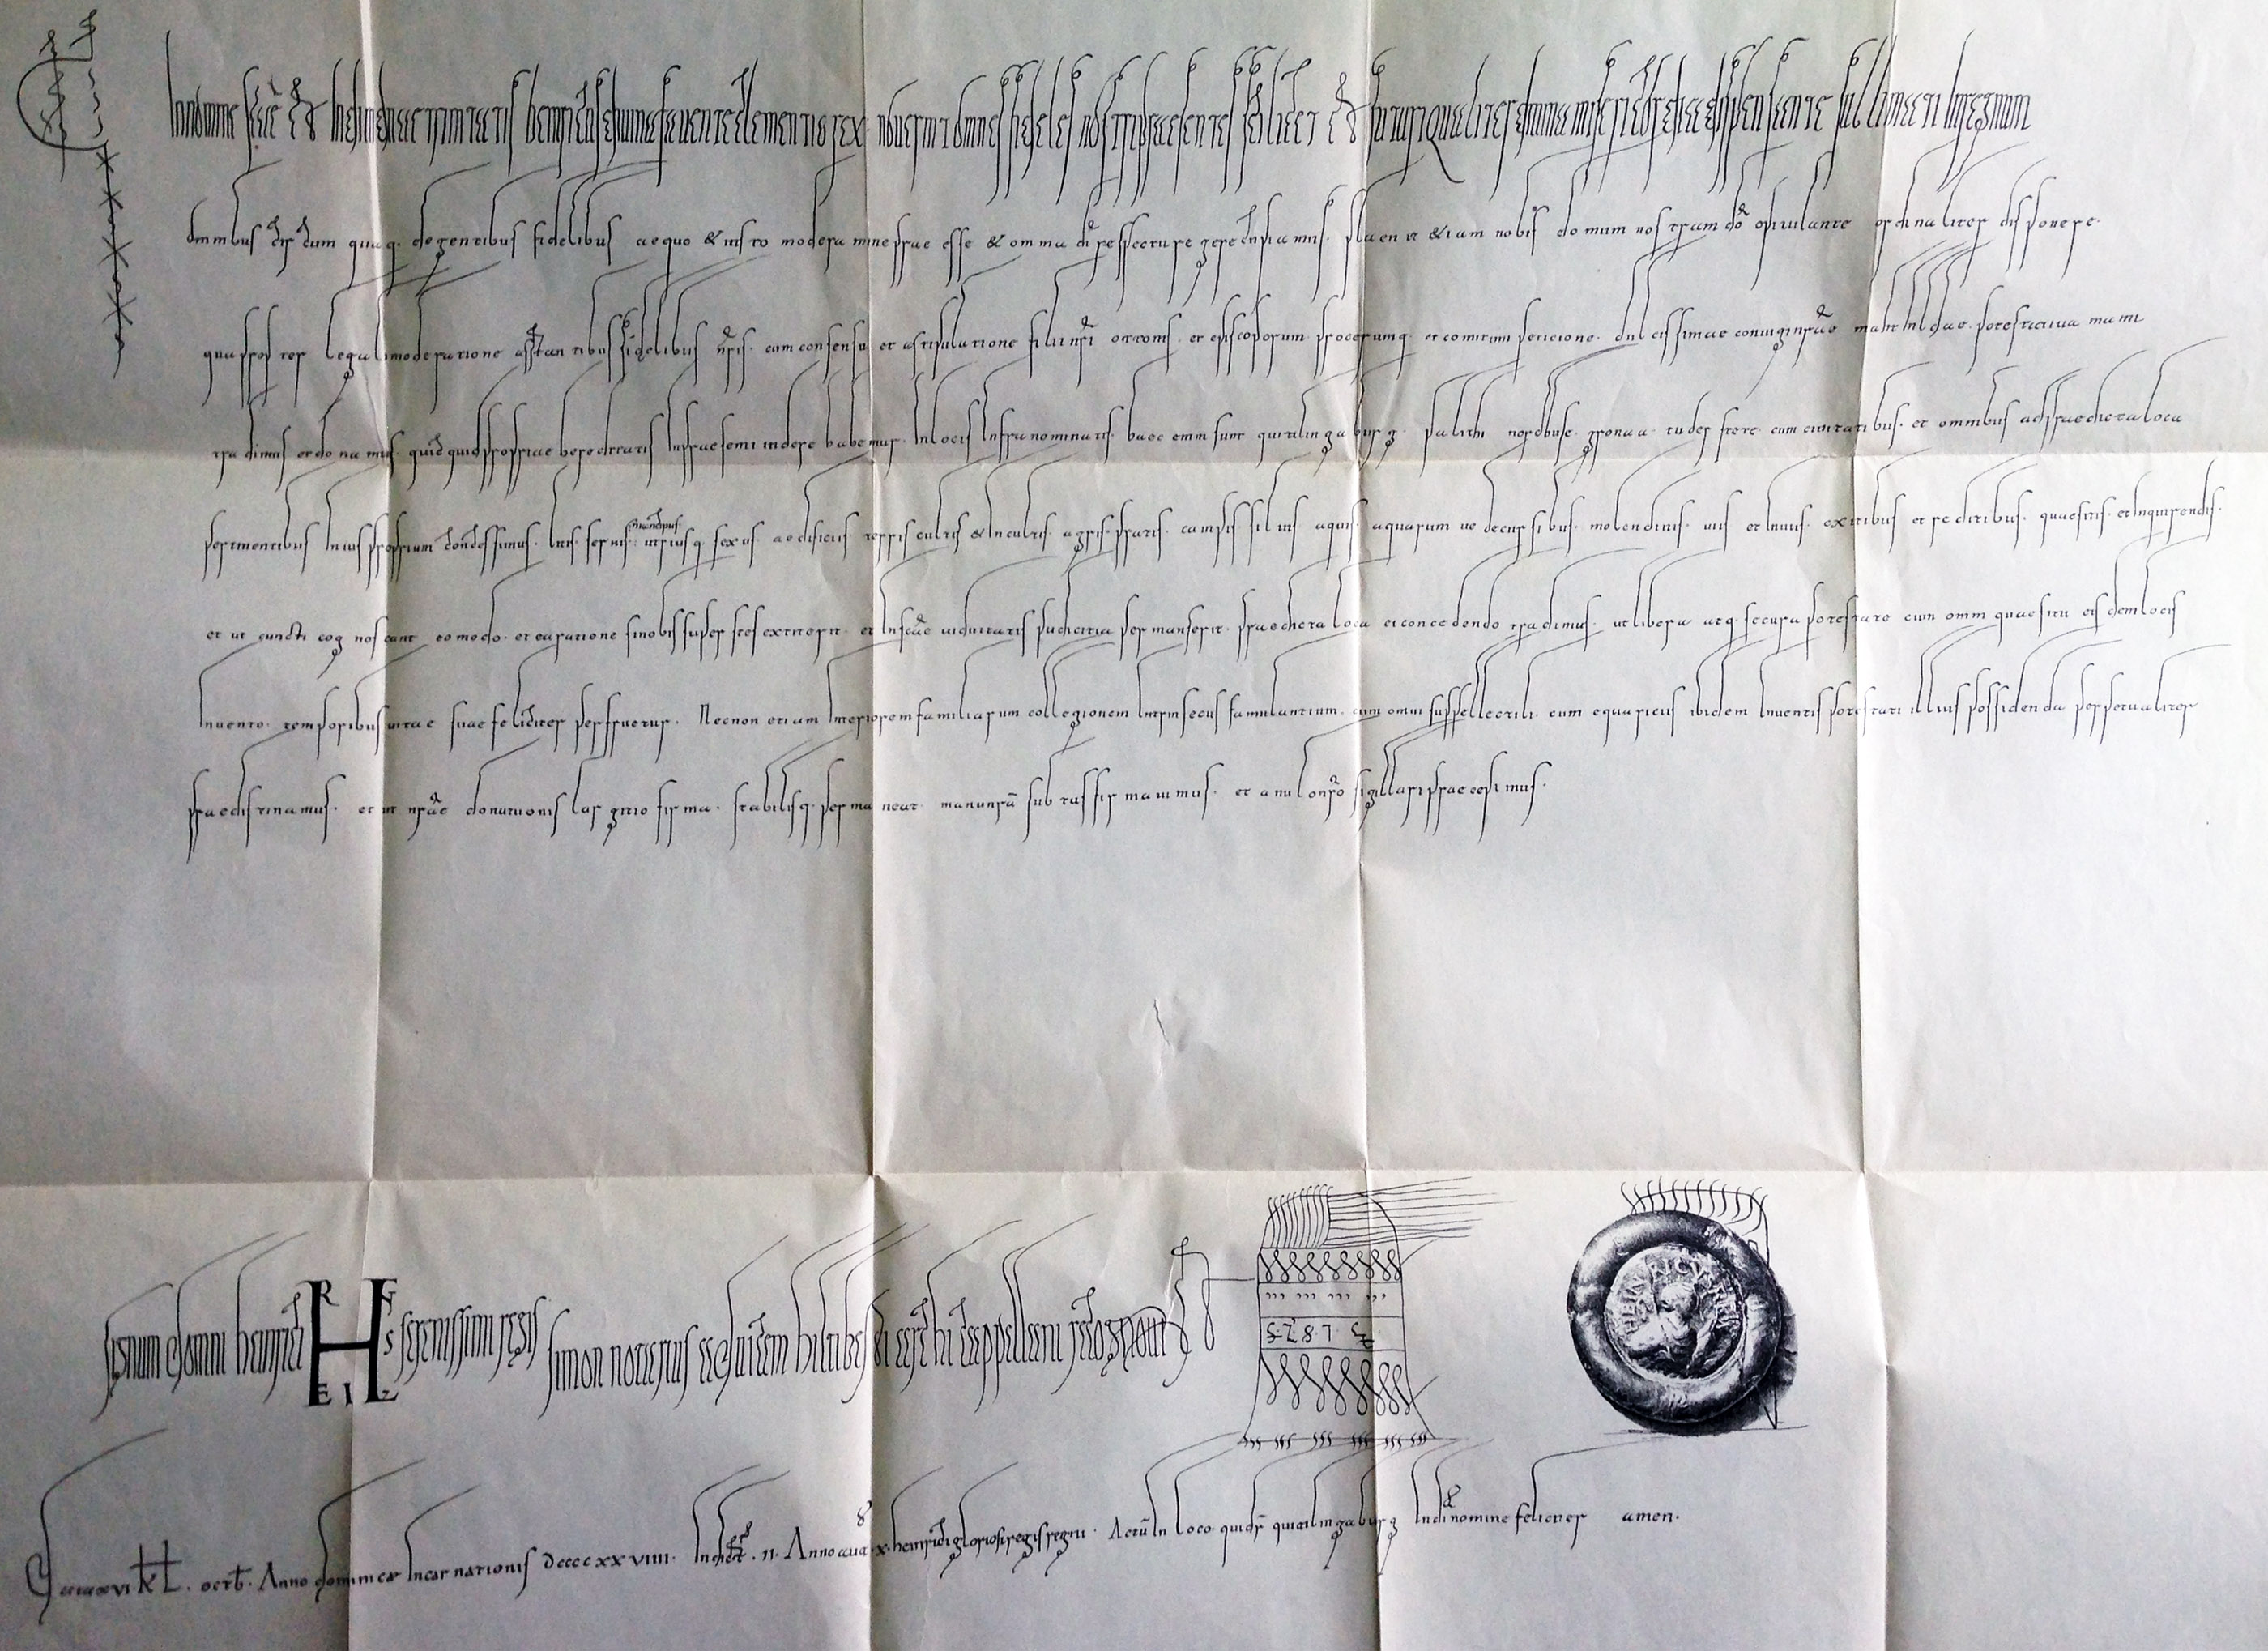 In nomine sc̄ae & individuae trinitatis heinricus divina favente clementia rex noverint omnes fideles nostri praesentes scilicet & futuri qualiter divina misericordia dispensante sublimati in regnum
omnibus circumquaq. degentibus fidelibus aequo & iusto moderamine prae esse & omnia di respectu regere cupiamus. placuit & iam nobis domum nostram dō opitulante ordinaliter disponere.
quapropter legali moderatione astantibus fidelibus nr̄is. cum consensu et astipulatione filii nr̄i ottonis. et episcoporum procerumq. et comitum peticione. dulcissimae coniugi nr̄ae mahthildae. potestativa manu
tradimus et donamus quidquid propriae hereditatis in praesenti videre habemus. In locis infra nominatis. haec enim sunt quitilingaburg. palithi nordhuse. gronaa. tuderstete. cum civitatibus. et omnibus ad praedicta loca
pertinentibus in ius proprium concessimus. litis. servis. mancipiis utriusq. sexus aedificiis terris cultis & incultis. agris. pratis. campis silvis aquis. aquarum ve decursibus. molendinis. viis et inviis. exitibus et reditibus. quaesitis. et inquirendis.
et ut cuncti cognoscant eo modo. et ea ratione si nobis superstes extiterit. et in sc̄ae viduitatis pudicitia permanserit. praedicta loca ei concedendo tradimus. ut libera atq. secura potestate cum omni quaesitu eisdem locis
invento. temporibus vitae suae feliciter perfruetur. Necnon etiam interiorem familiarum collegionem intrinsecus famulantium. cum omni suppellectili. cum equariciis ibidem inventis potestati illius possidenda perpetualiter
praedistinamus. et ut nr̄ae donationis largitio firma. stabilisq. permaneat. manu nr̄a subtus firmavimus. et anulo nr̄o sigillari praecepimus.
signum domni heinrici HREINSIZ serenissimi regis simon notarius ad vicem hiltibesdi archicappellani recognovi
Data xvi kl̄. octb̄. Anno dominicae incarnationis dcccc xx viiii. Indict̄. ii. Anno aut̄ x heinrici gloriosi regis regni. Actū in loco qui d̄r quitilingaburg In di nomine feliciter amen.